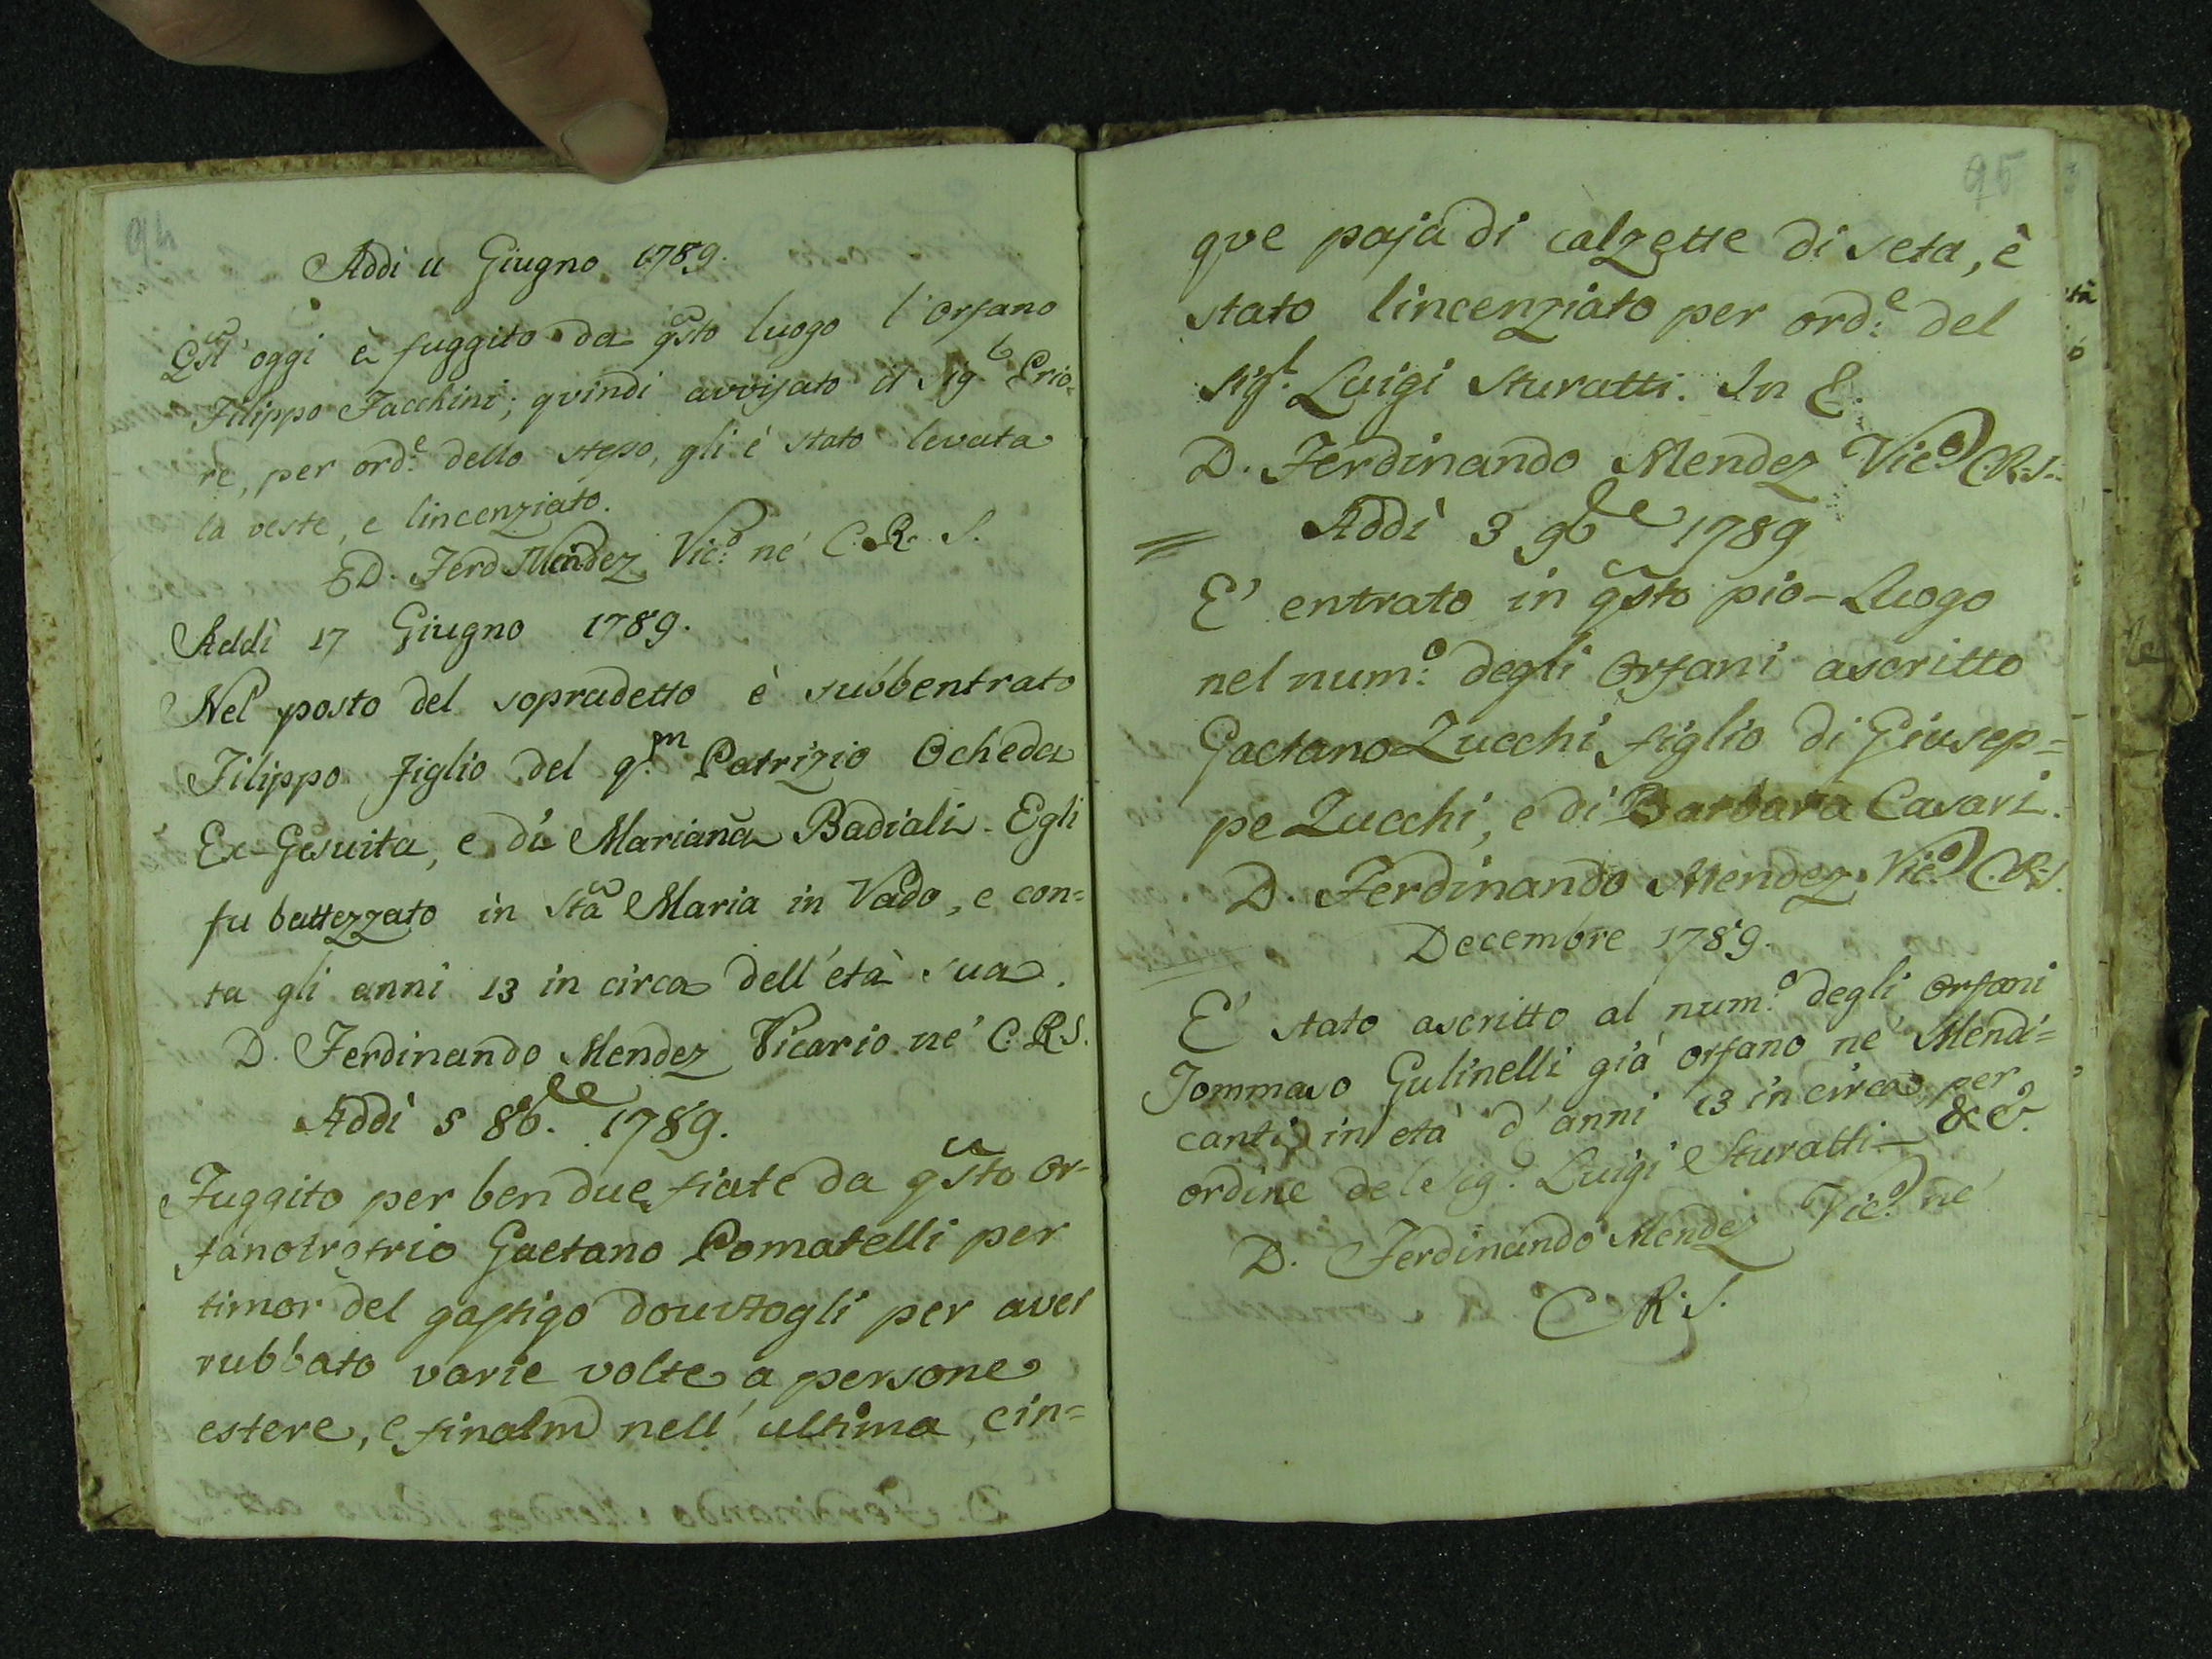 94
Addi 11 Giugno 1789.
Qst' oggi è fuggito da qsto luogo l'Orfano
Filippo Facchini; quindi avvisato il Sigr Prio-
re, per ord:e dello stesso, gli è stato levata
la veste, e lincenziato.
D. Ferd Mendez Vic:o nè C. R. S.
Addì 17 Giugno 1789.
Nel posto del sopradetto è subbentrato
Filippo figlio del q.m Patrizio Ocheda
Ex-Gesuita, e di Mariana Badiali. Egli
fu battezzato in Sta Maria in Vado, e con=
ta gli anni 13 in circa dell'età sua.
D. Ferdinando Mendez Vicario nè C. R. S.
Addì 5 8b.re 1789.
Fuggito per ben due fiate da qsto Or-
fanotrofio Gaetano Pomatelli per
timor del gastigo dovutogli per aver
rubbato varie volte a persone
estere, e finalm nell'ultima, cin=
95
que paja di calzette di seta, è
stato lincenziato per ord:e del
Sigr. Luigi Sturatti. In E.
D. Ferdinando Mendez Vic:o C. R. S.
Addì 3 9bre 1789
E' entrato in qsto pio-Luogo
nel num:o degli Orfani ascritto
Gaetano Zucchi figlio di Giusep=
pe Zucchi, e di Barbara Casari.
D. Ferdinando Mendez Vic:o C. R. S.
Decembre 1789.
E' stato ascritto al num:o degli Orfani
Tommaso Gulinelli già orfano nè Mendi=
canti in età d'anni 13 in circa per
ordine del Sig.r Luigi Sturatti - &c.
D. Ferdinando Mendez Vic:o nè
C R. S.